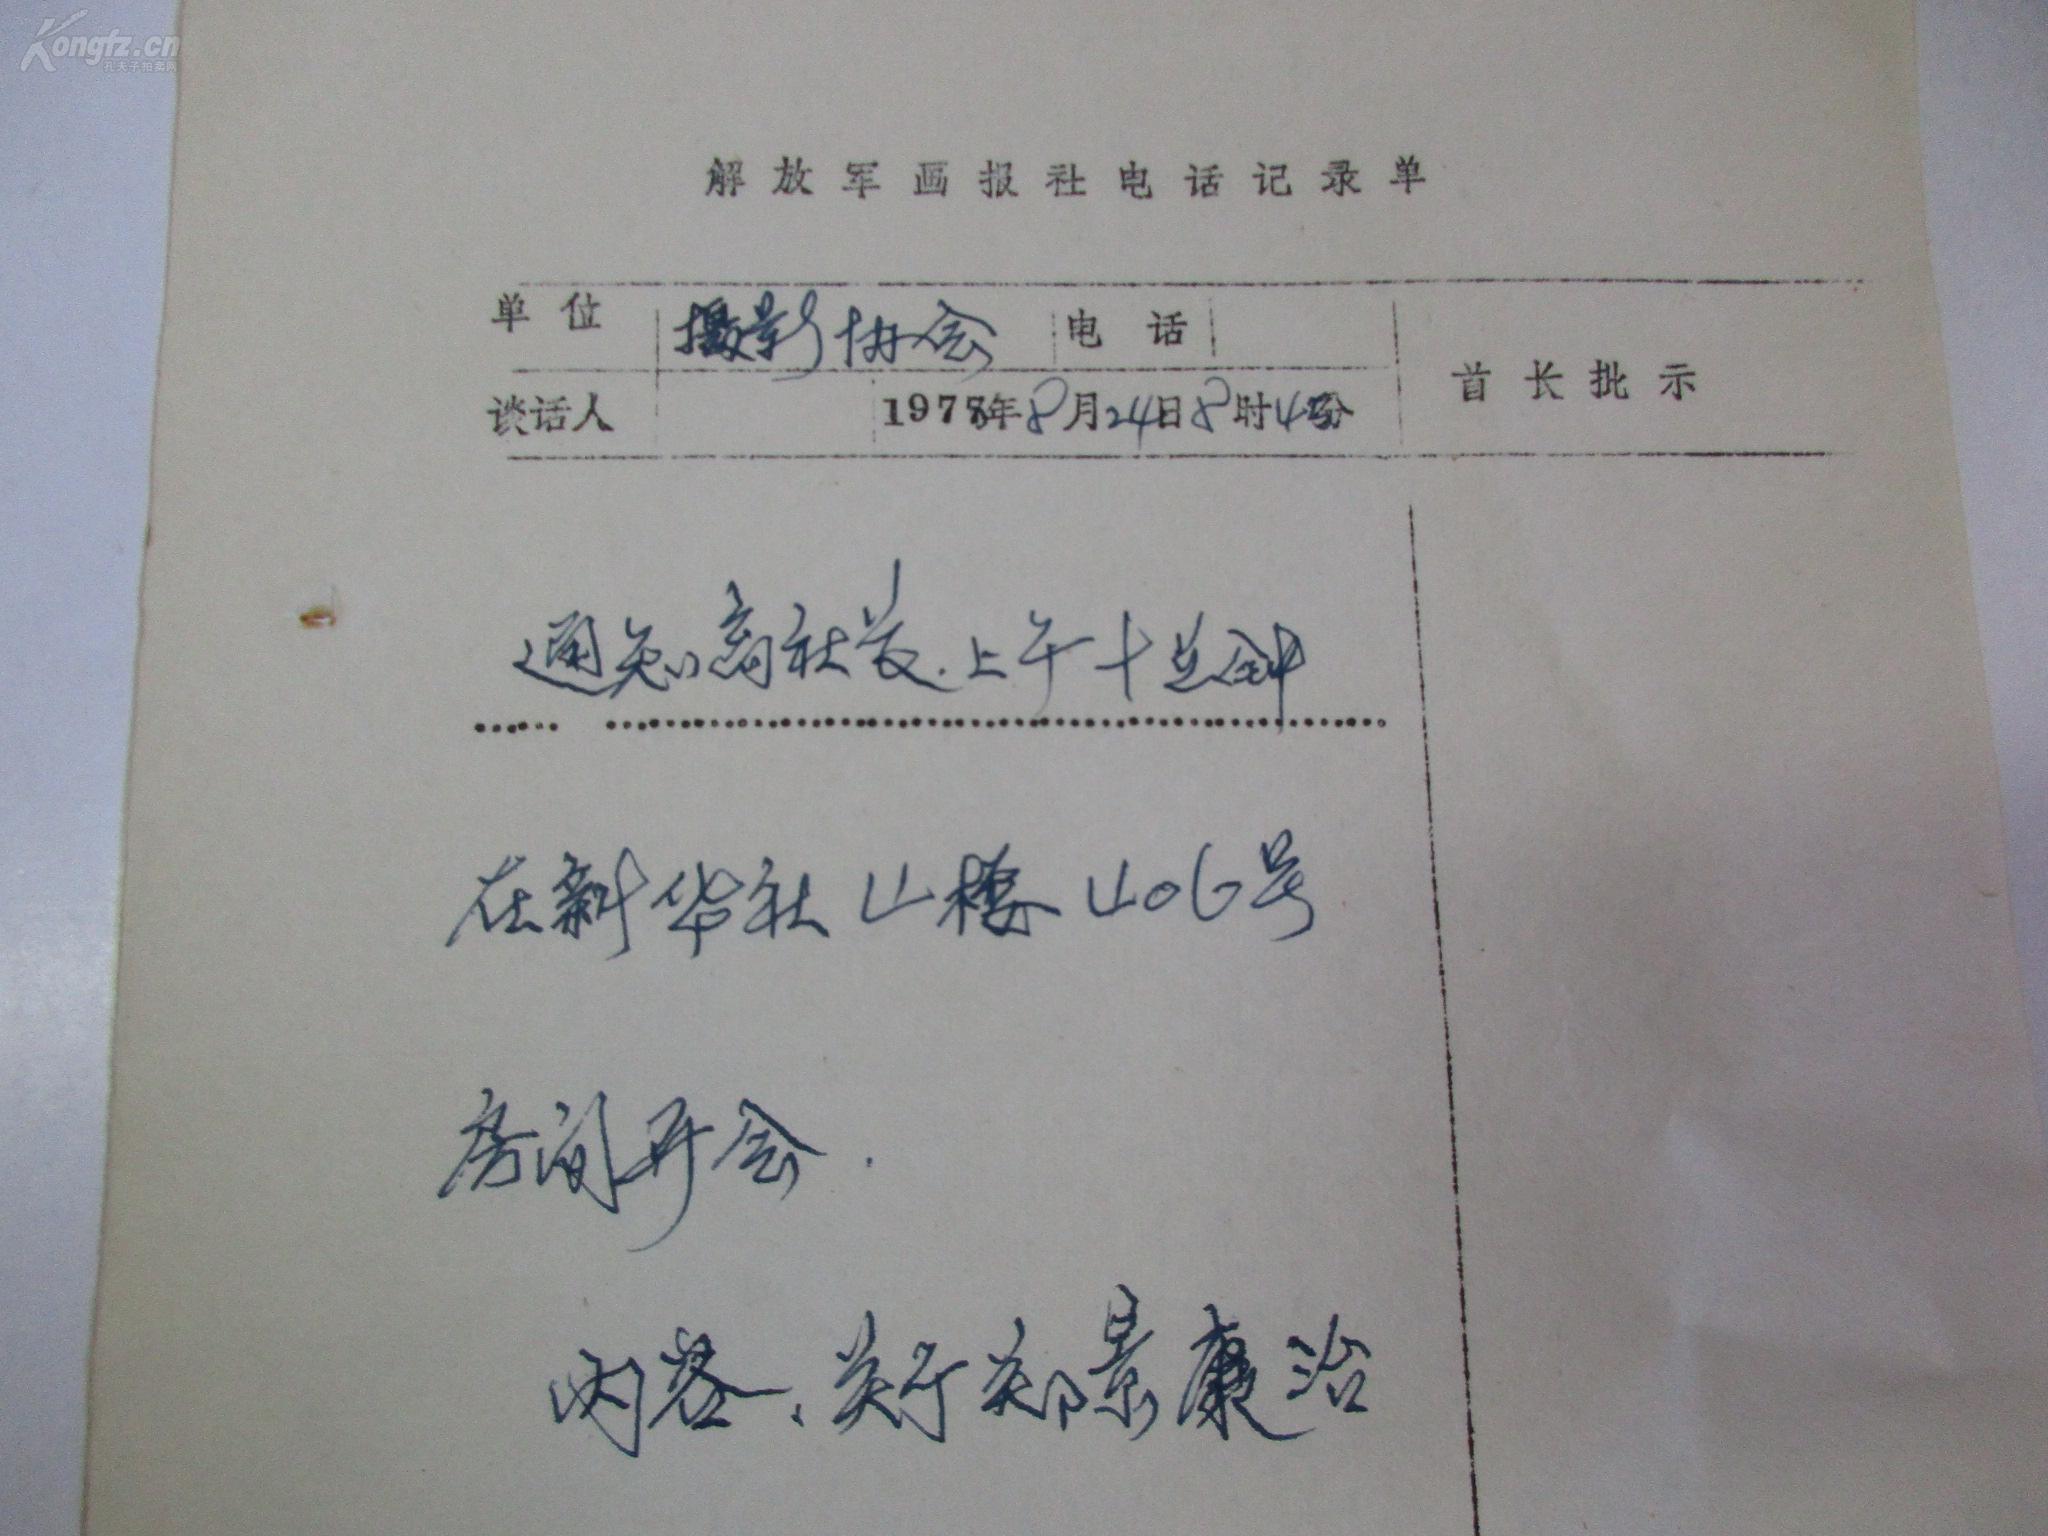 Kongfz.cn
孔夫子拍卖网
解放军画报社电话记录单
单位 摄影协会 电话
首长批示
谈话人 1978年8月24日8时45分
通知高社长.上午十点钟
在新华社4楼406号
房间开会.
内容、关于郑景康治